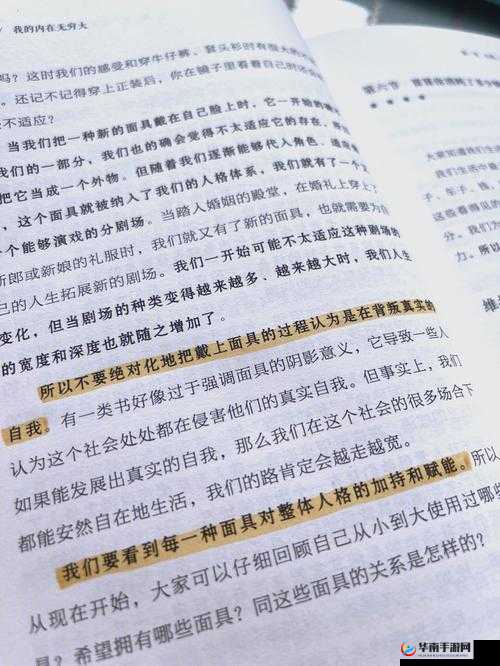 我的内在无穷大
吗？这时我们的感受和穿牛仔裤、套头衫时有很大的
。还记不记得穿上正装后，你在镜子里看看自己时还
不适应？
当我们把一种新的面具戴在自己脸上时，它一开始的
我们的一部分，我们也的确会觉得不太适应它的存在，
把它当成一个外物。但随着我们逐渐能够代入角色，适应
，这个面具就被纳入了我们的人格体系，我们就有了一个
个能够演戏的分剧场。当踏入婚姻的殿堂，在婚礼上穿上
新郎或新娘的礼服时，我们就又有了新的面具，也就需要为
己的人生拓展新的剧场。我们一开始可能不太适应这种剧场的
变化，但当剧场的种类变得越来越多、越来越大时，我们人生
的宽度和深度也就随之增加了。
所以不要绝对化地把戴上面具的过程认为是在背叛真实的
自我。有一类书好像过于强调面具的阴影意义，它导致一些人
认为这个社会处处都在侵害他们的真实自我。但事实上，我们
如果能发展出真实的自我，那么我们在这个社会的很多场合下
都能安然自在地生活，我们的路肯定会越走越宽。
我们要看到每一种面具对整体人格的加持和赋能。所以
从现在开始，大家可以仔细回顾自己从小到大使用过哪些
面具？希望拥有哪些面具？同这些面具的关系是怎样的？
第六节
大家知道我们生活
我们的生活中
子、车子、孩
这些看得见
分。我们为
力。所以
华南手游网